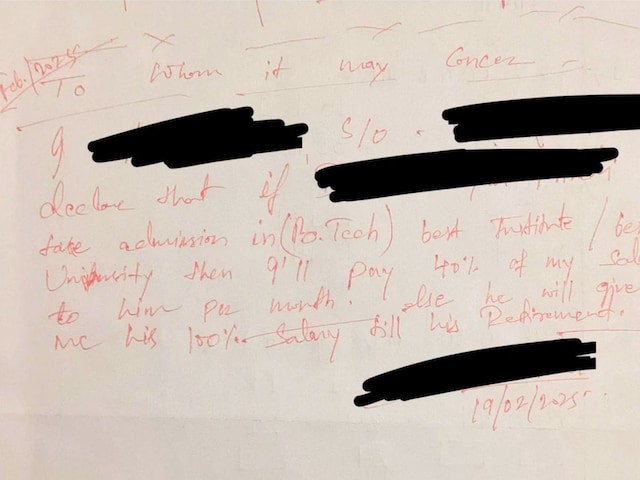 Feb. 2025
To Whom it may Concer
I S/O -
declare that if
take admission in (B.Tech) best Institute /
University then I'll pay 40% of my
to him per month. else he will give
me his 100% Salary till his Retirement.
19/02/2025